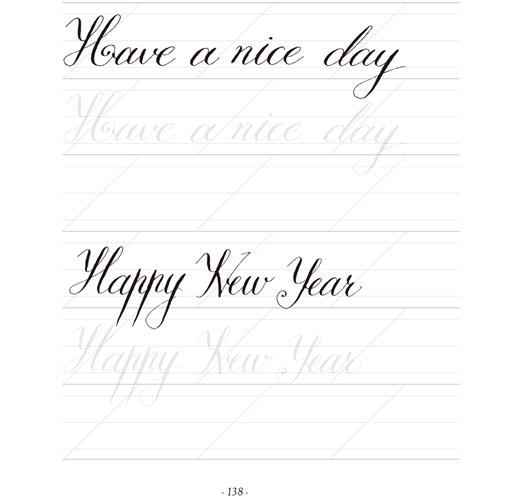 Have a nice day
Have a nice day
Happy New Year
Happy New Year
- 138 -